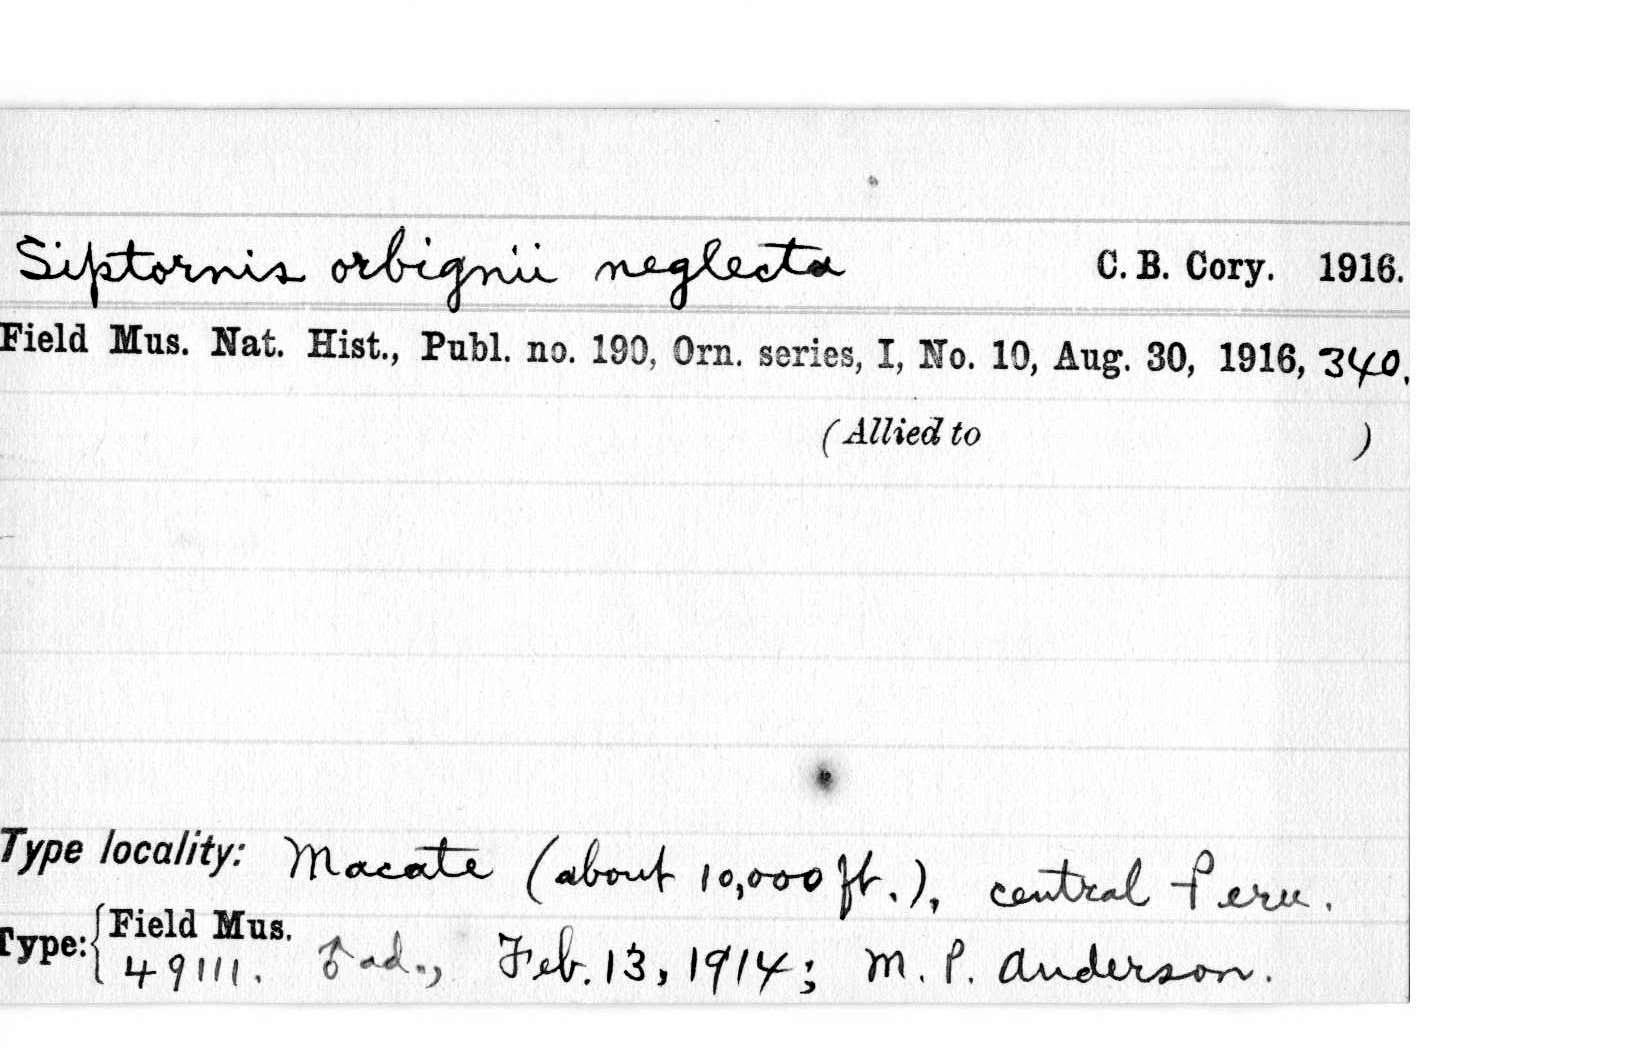 Siptornis orbignii neglecta C. B. Cory. 1916.
Field Mus. Nat. Hist., Publ. no. 190, Orn. series, I, No. 10, Aug. 30, 1916, 340.
(Allied to )
Type locality: Macate (about 10,000 ft.), central Peru.
Type: { Field Mus.
49111. ♂ ad., Feb. 13, 1914; M. P. Anderson.